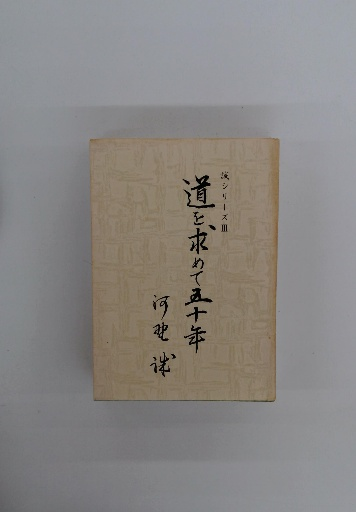 シリーズⅢ
道を求めて五十年
河野 誠